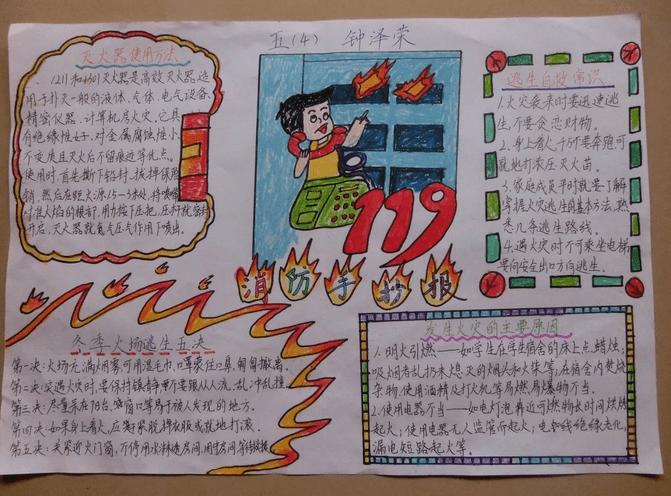 五(4) 钟泽荣
灭火器使用方法
1211和 灭火器是高效灭火器,适
用于扑灭一般的液体、气体、电气设备、
精密仪器、计算机房火灾。它具
有绝缘性好,对金属腐蚀性小,
不变质且灭火后不留痕迹等优点。
使用时,首先撕下铅封,拔掉保险
销,然后在距火源1.5—3米处,将喷嘴
对准火焰的根部,用力按下压把,压
开启,灭火器就 气压气作用下喷出。
119
消防手抄报
逃生自救常识
1.火灾袭来时要迅速逃
生,不要贪恋财物。
2.身上着火,千万不要奔跑,可
就地打滚压灭火苗。
3.家庭成员平时就要了解
掌握火灾逃生的基本方法,熟
悉几条逃生路线。
4.遇火灾时不可乘坐电梯,
要向安全出口方向逃生。
冬季火场逃生五决
第一决:火场充满烟雾,可用湿毛巾、口罩捂住口鼻,匍匐撤离。
第二决:突遇火灾时,要保持镇静,千万不要跟从人流,乱冲乱撞。
第三决:尽量呆在阳台、窗口等易于被人发现的地方。
第四决:如果身上着火,应赶紧脱掉衣服或就地打滚。
第五决:关紧近火门窗,不停用水淋透房间,固守房间等待救援。
发生火灾的主要原因
1.明火引燃——如学生在学生宿舍的床上点蜡烛;
吸烟者乱扔未熄灭的烟头和火柴等;在宿舍内焚烧
杂物,使用酒精及打火机等易燃易爆物不当。
2.使用电器不当——如电灯泡靠近可燃物长时间烘烤
起火;使用电器无人监管而起火;电路线绝缘老化,
漏电短路起火等。